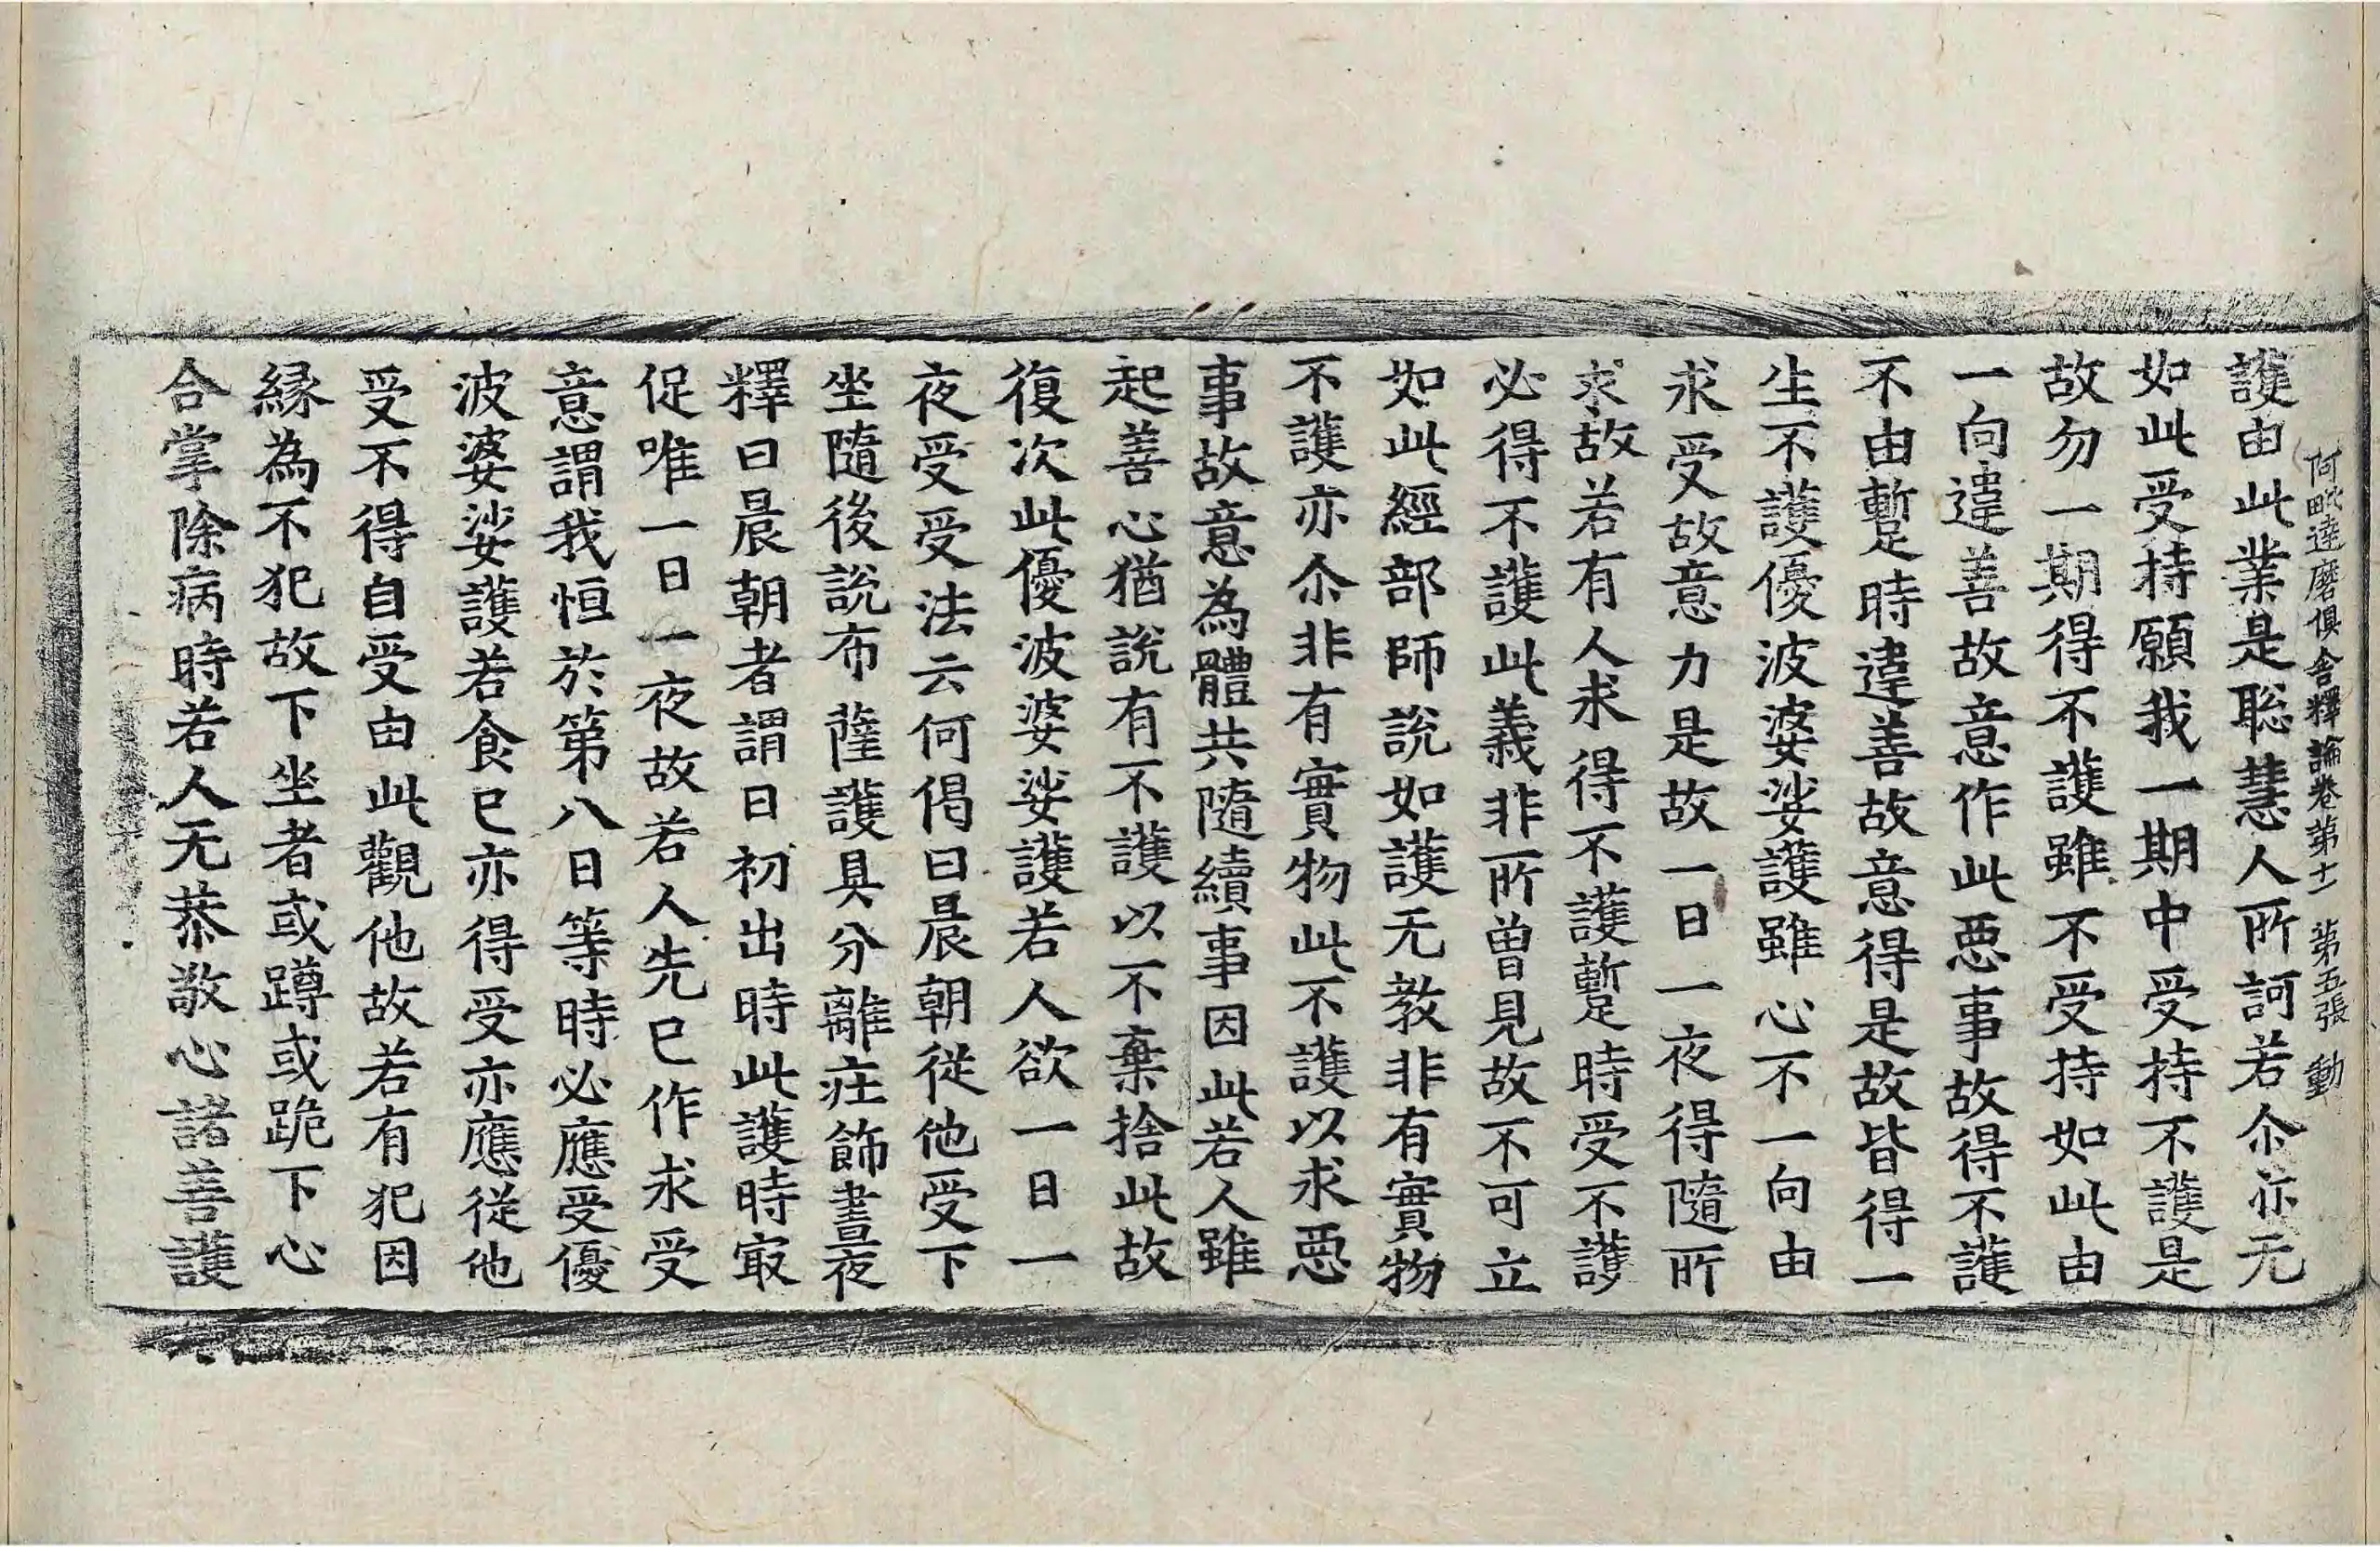 阿毗達磨俱舍釋論卷第十一 第五張 動
護由此業是聡慧人所訶若尒亦无
如此受持願我一期中受持不護是
故勿一期得不護雖不受持如此由
一向違善故意作此惡事故得不護
不由暫時違善故意得是故皆得一
生不護優波婆娑護雖心不一向由
求受故意力是故一日一夜得隨所
求故若有人求得不護暫時受不護
必得不護此義非所曾見故不可立
如此經部師說如護无教非有實物
不護亦尒非有實物此不護以求惡
事故意為體共隨續事因此若人雖
起善心猶說有不護以不棄捨此故
復次此優波婆娑護若人欲一日一
夜受受法云何偈曰晨朝從他受下
坐隨後說布薩護具分離庄飾晝夜
釋曰晨朝者謂日初出時此護時㝡
促唯一日一夜故若人先已作求受
意謂我恒於第八日等時必應受優
波婆娑護若食已亦得受亦應從他
受不得自受由此觀他故若有犯因
縁為不犯故下坐者或蹲或跪下心
合掌除病時若人无恭敬心諸善護